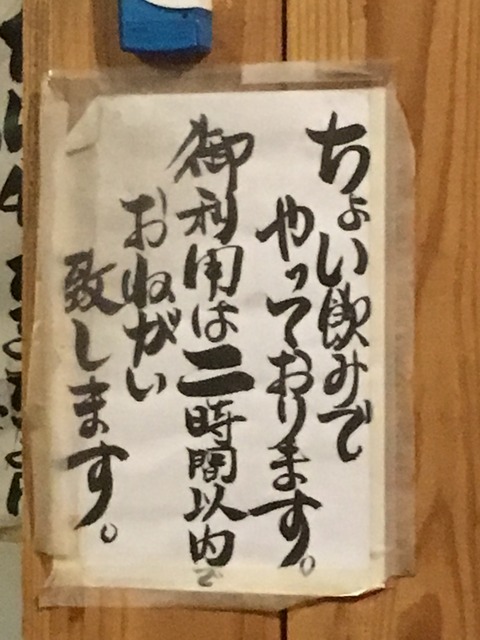 ちょい飲みで
やっております。
御利用は二時間以内で
おねがい
致します。